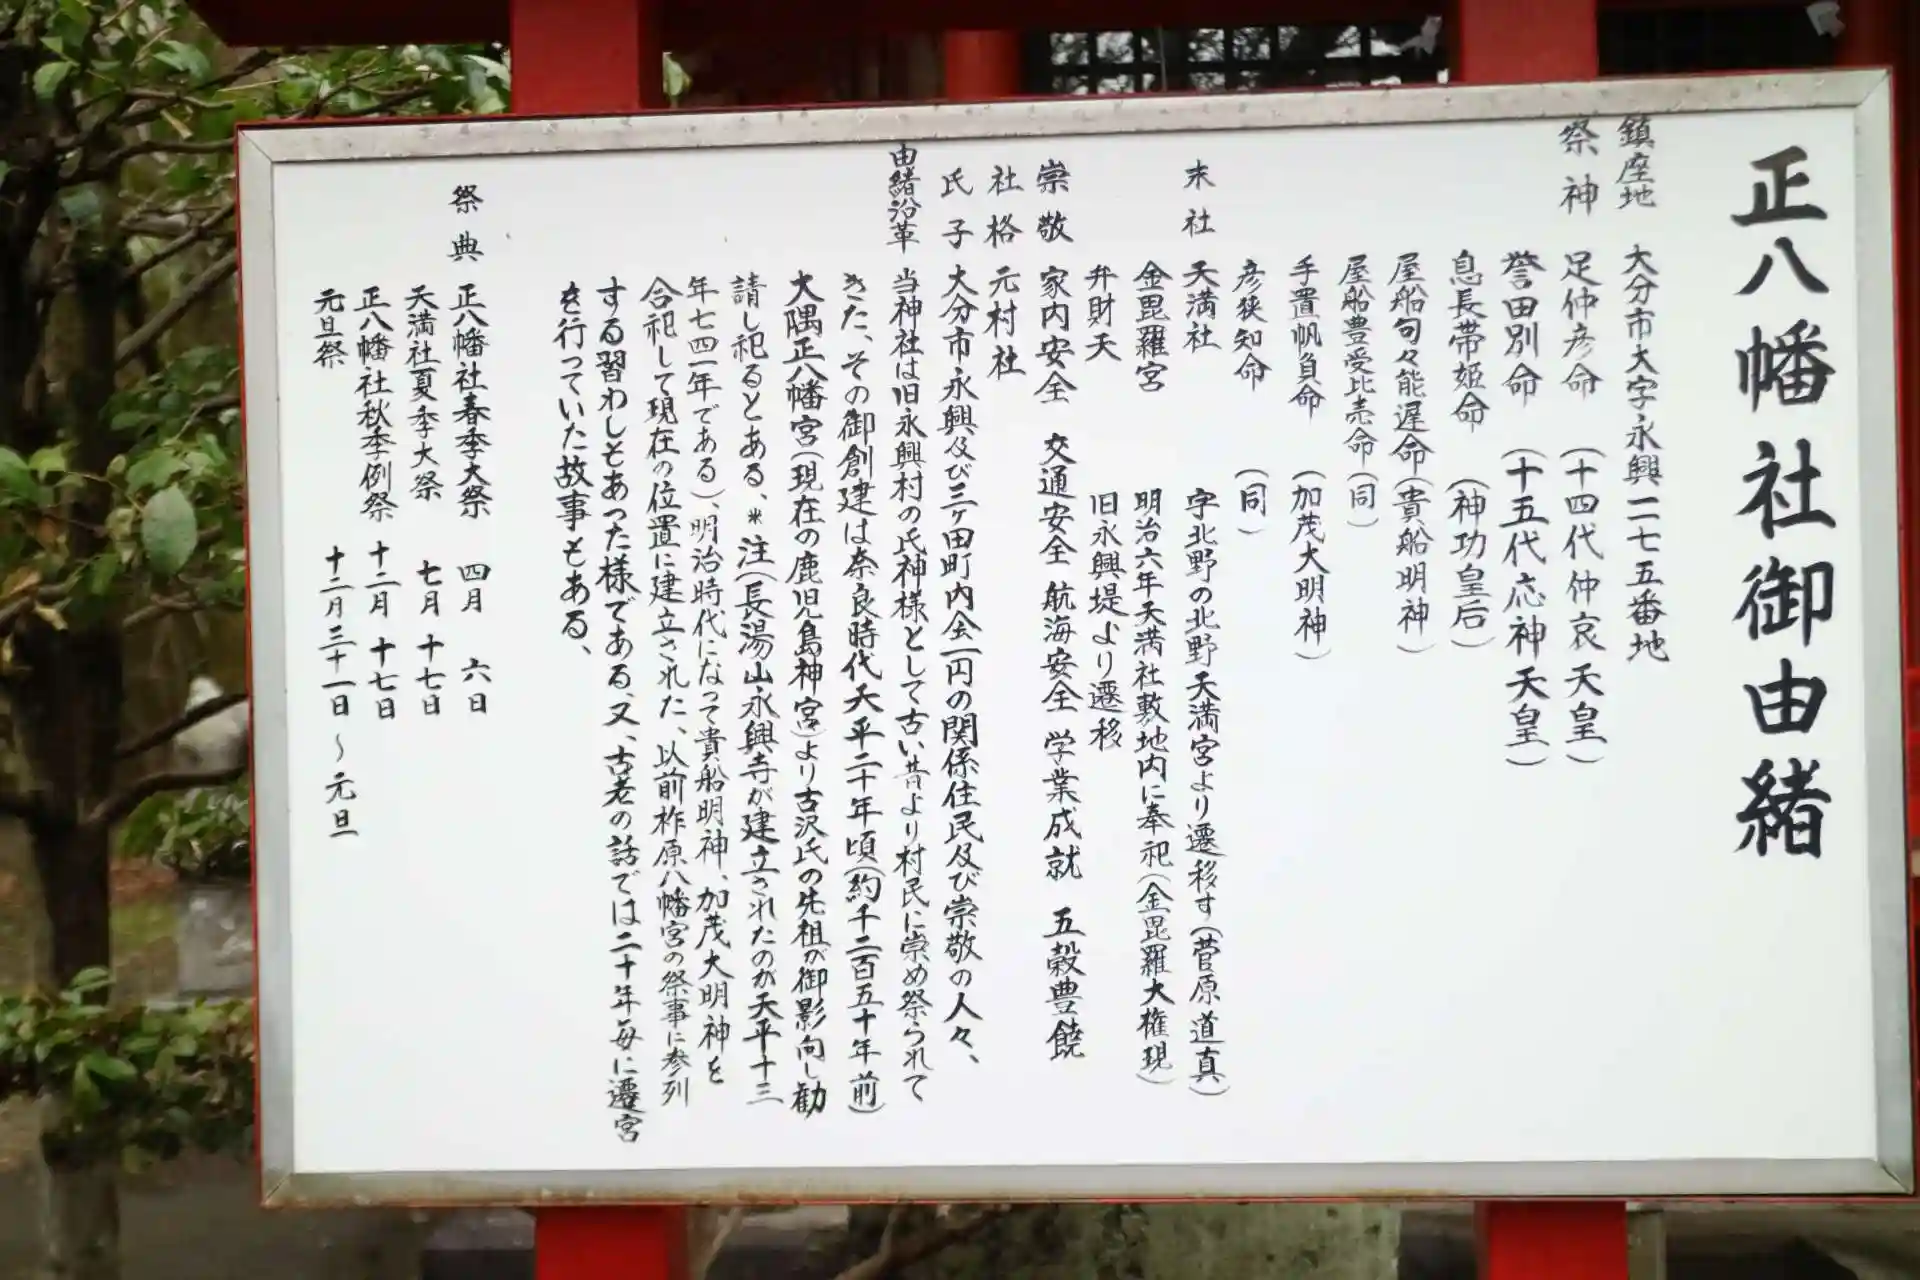 正八幡社御由緒
鎮座地 大分市大字永興一二七五番地
祭神 足仲彦命 (十四代仲哀天皇)
誉田別命 (十五代応神天皇)
息長帯姫命 (神功皇后)
屋船句々能遅命(貴船明神)
屋船豊受比売命(同)
手置帆負命 (加茂大明神)
彦狭知命 (同)
末社 天満社 字北野の北野天満宮より遷移す(菅原道真)
金毘羅宮 明治六年天満社敷地内に奉祀(金毘羅大権現)
弁財天 旧永興堤より遷移
崇敬 家内安全 交通安全 航海安全 学業成就 五穀豊饒
社格 元村社
氏子 大分市永興及び三ヶ田町内会一円の関係住民及び崇敬の人々、
由緒沿革 当神社は旧永興村の氏神様として古い昔より村民に崇め祭られて
きた、その御創建は奈良時代天平二十年頃(約千二百五十年前)
大隅正八幡宮(現在の鹿児島神宮)より古沢氏の先祖が御影向し勧
請し祀るとある、*注(長湯山永興寺が建立されたのが天平十三
年七四一年である)、明治時代になって貴船明神、加茂大明神を
合祀して現在の位置に建立された、以前柞原八幡宮の祭事に参列
する習わしもあった様である、又、古老の話では二十年毎に遷宮
を行っていた故事もある、
祭典 正八幡社春季大祭 四月 六日
天満社夏季大祭 七月 十七日
正八幡社秋季例祭 十二月 十七日
元旦祭 十二月三十一日~元旦